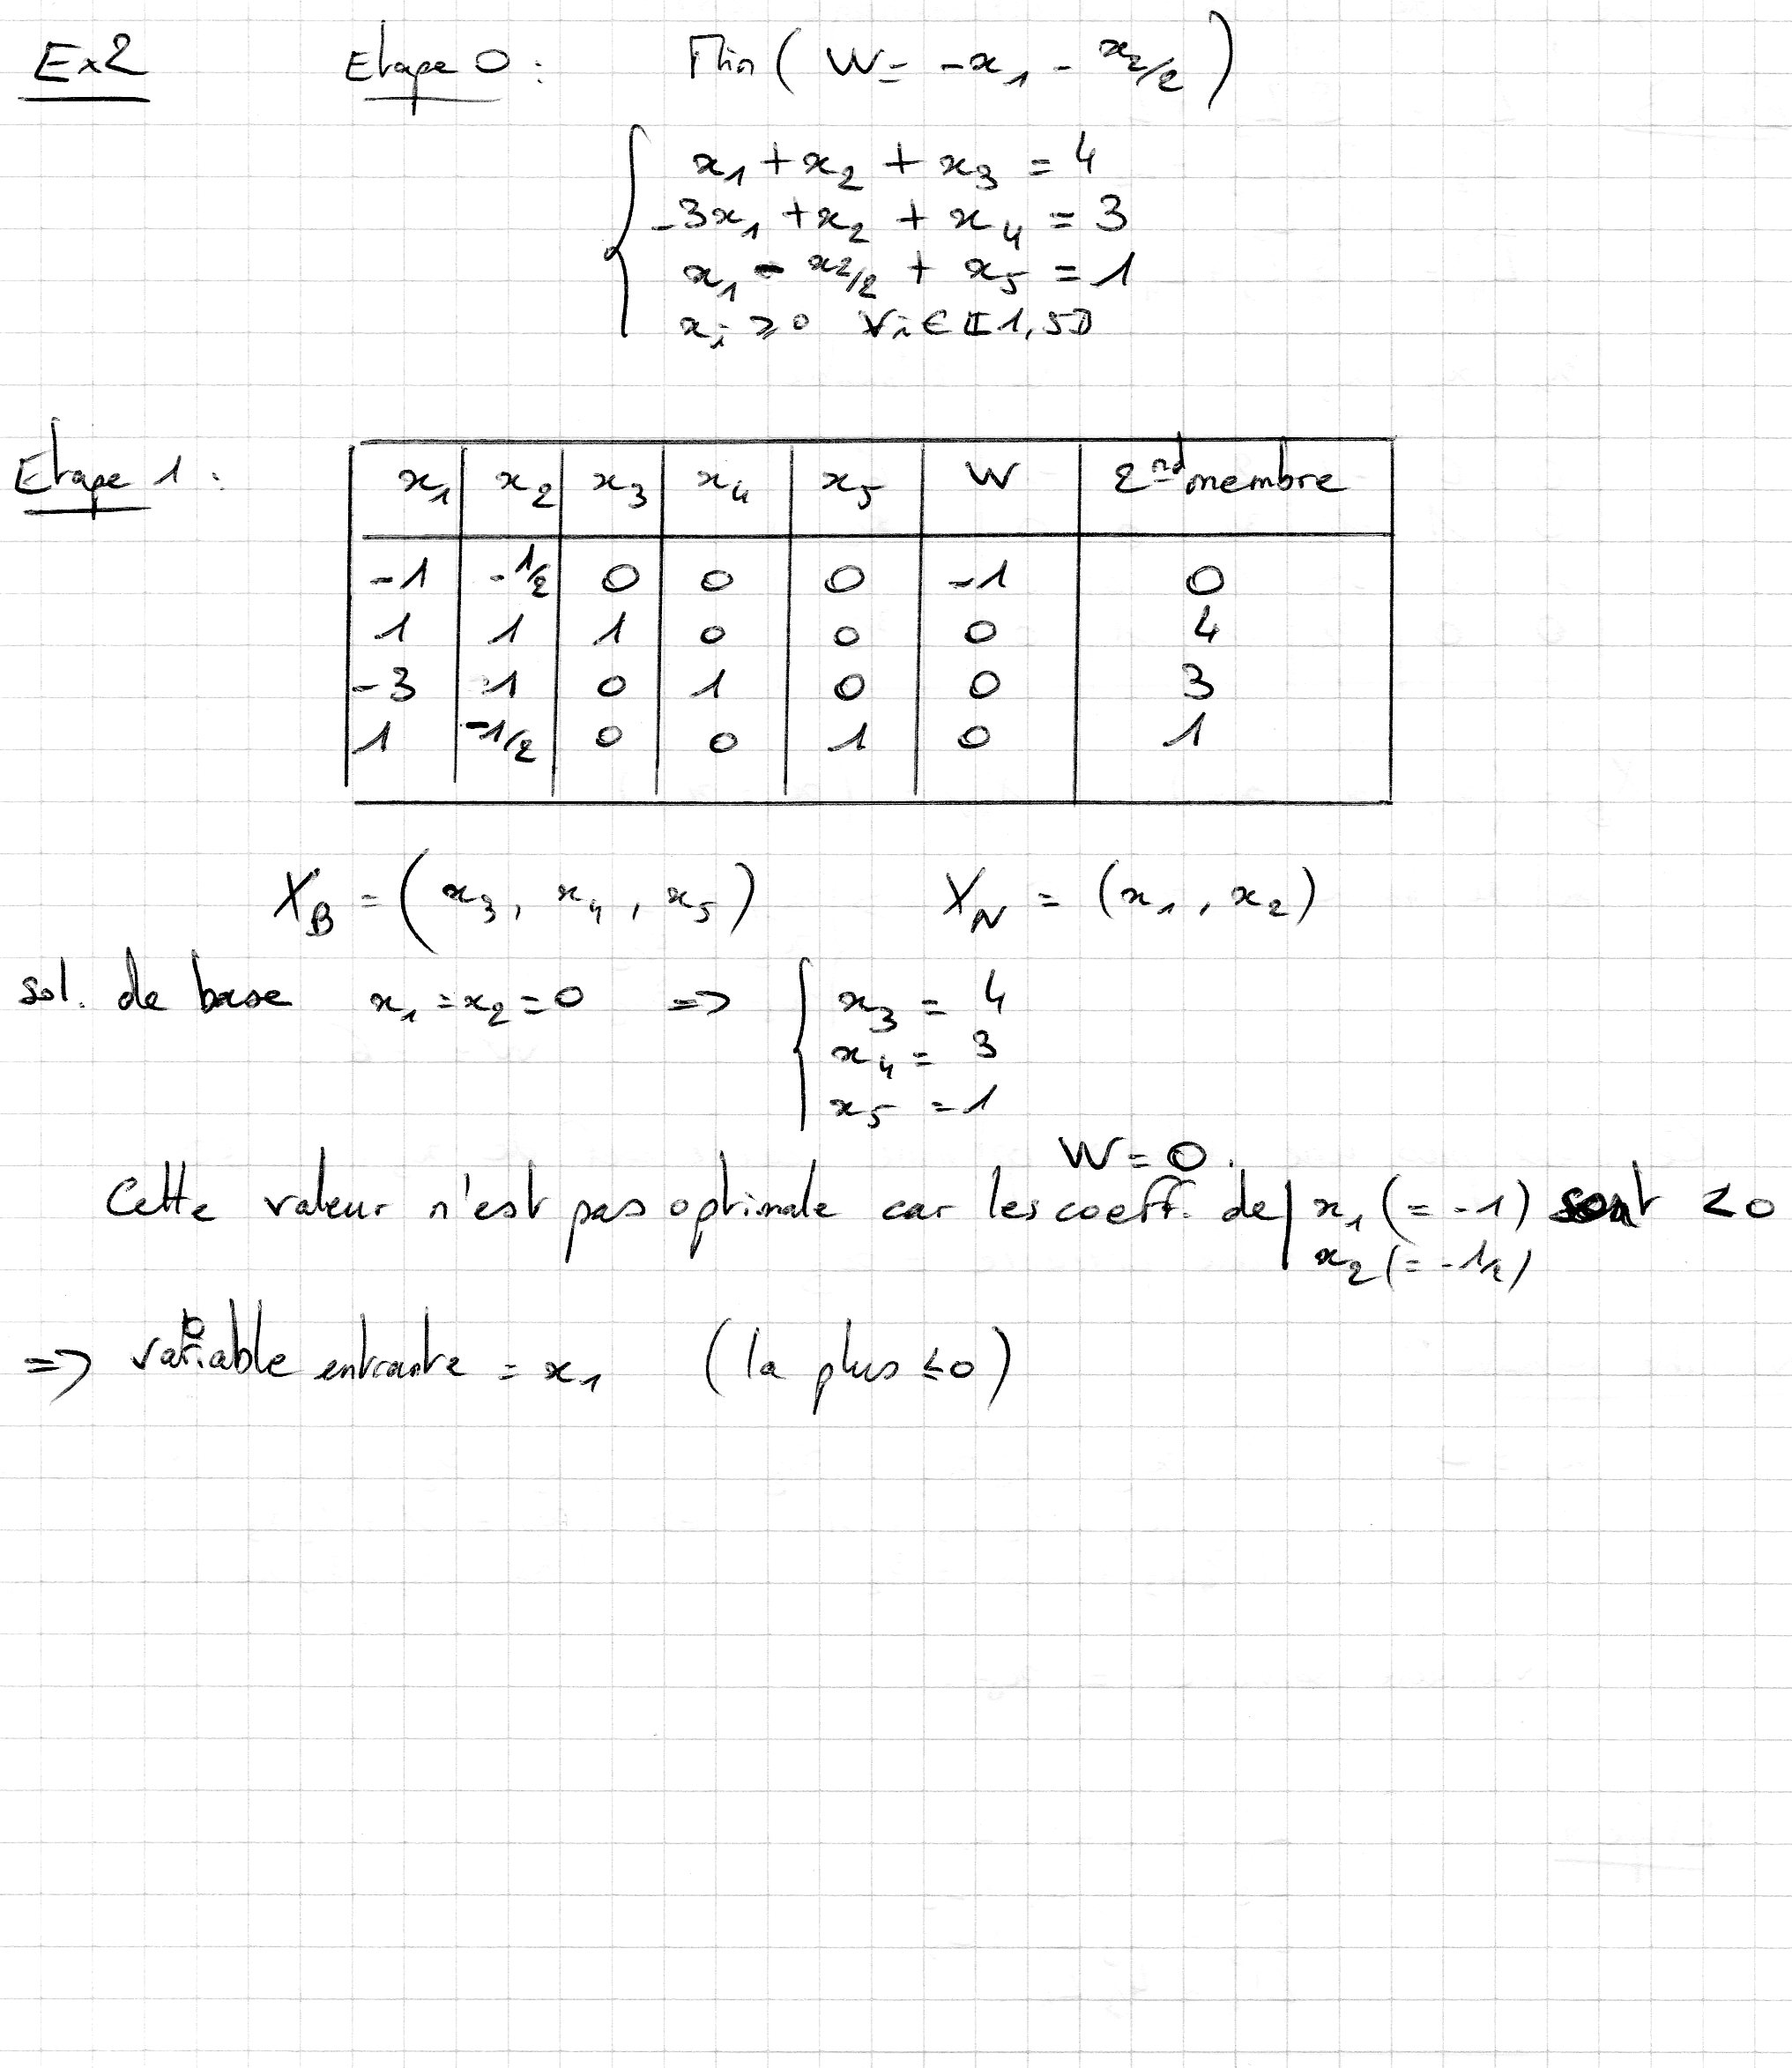 Ex2 Etape 0 : Min ( W = -x₁ - x₂/2 )
x₁ + x₂ + x₃ = 4
-3x₁ + x₂ + x₄ = 3
x₁ - x₂/2 + x₅ = 1
xᵢ ≥ 0 ∀i ∈ ⟦1,5⟧
Etape 1 :
x₁ x₂ x₃ x₄ x₅ W 2nd membre
-1 -1/2 0 0 0 -1 0
1 1 1 0 0 0 4
-3 1 0 1 0 0 3
1 -1/2 0 0 1 0 1
X_B = (x₃, x₄, x₅) X_N = (x₁, x₂)
sol. de base x₁ = x₂ = 0 => x₃ = 4
x₄ = 3
x₅ = 1
W = 0.
Cette valeur n'est pas optimale car les coeff. de | x₁ (= -1) sont ≤ 0
x₂ (= -1/2)
=> variable entrante = x₁ (la plus ≤ 0)